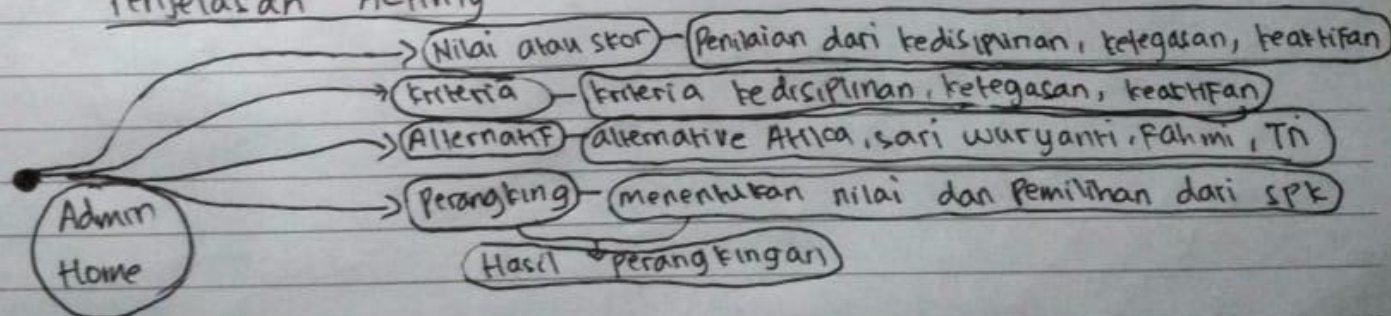 Penjelasan
Nilai atau skor Penilaian dari kedisiplinan, ketegasan, keaktifan
Kriteria kriteria kedisiplinan, ketegasan, keaktifan
Alternatif alternative Attica, sari wuryanti, Fahmi, Tri
Perangking menentukan nilai dan Pemilihan dari spk
Admin
Home
Hasil perangkingan